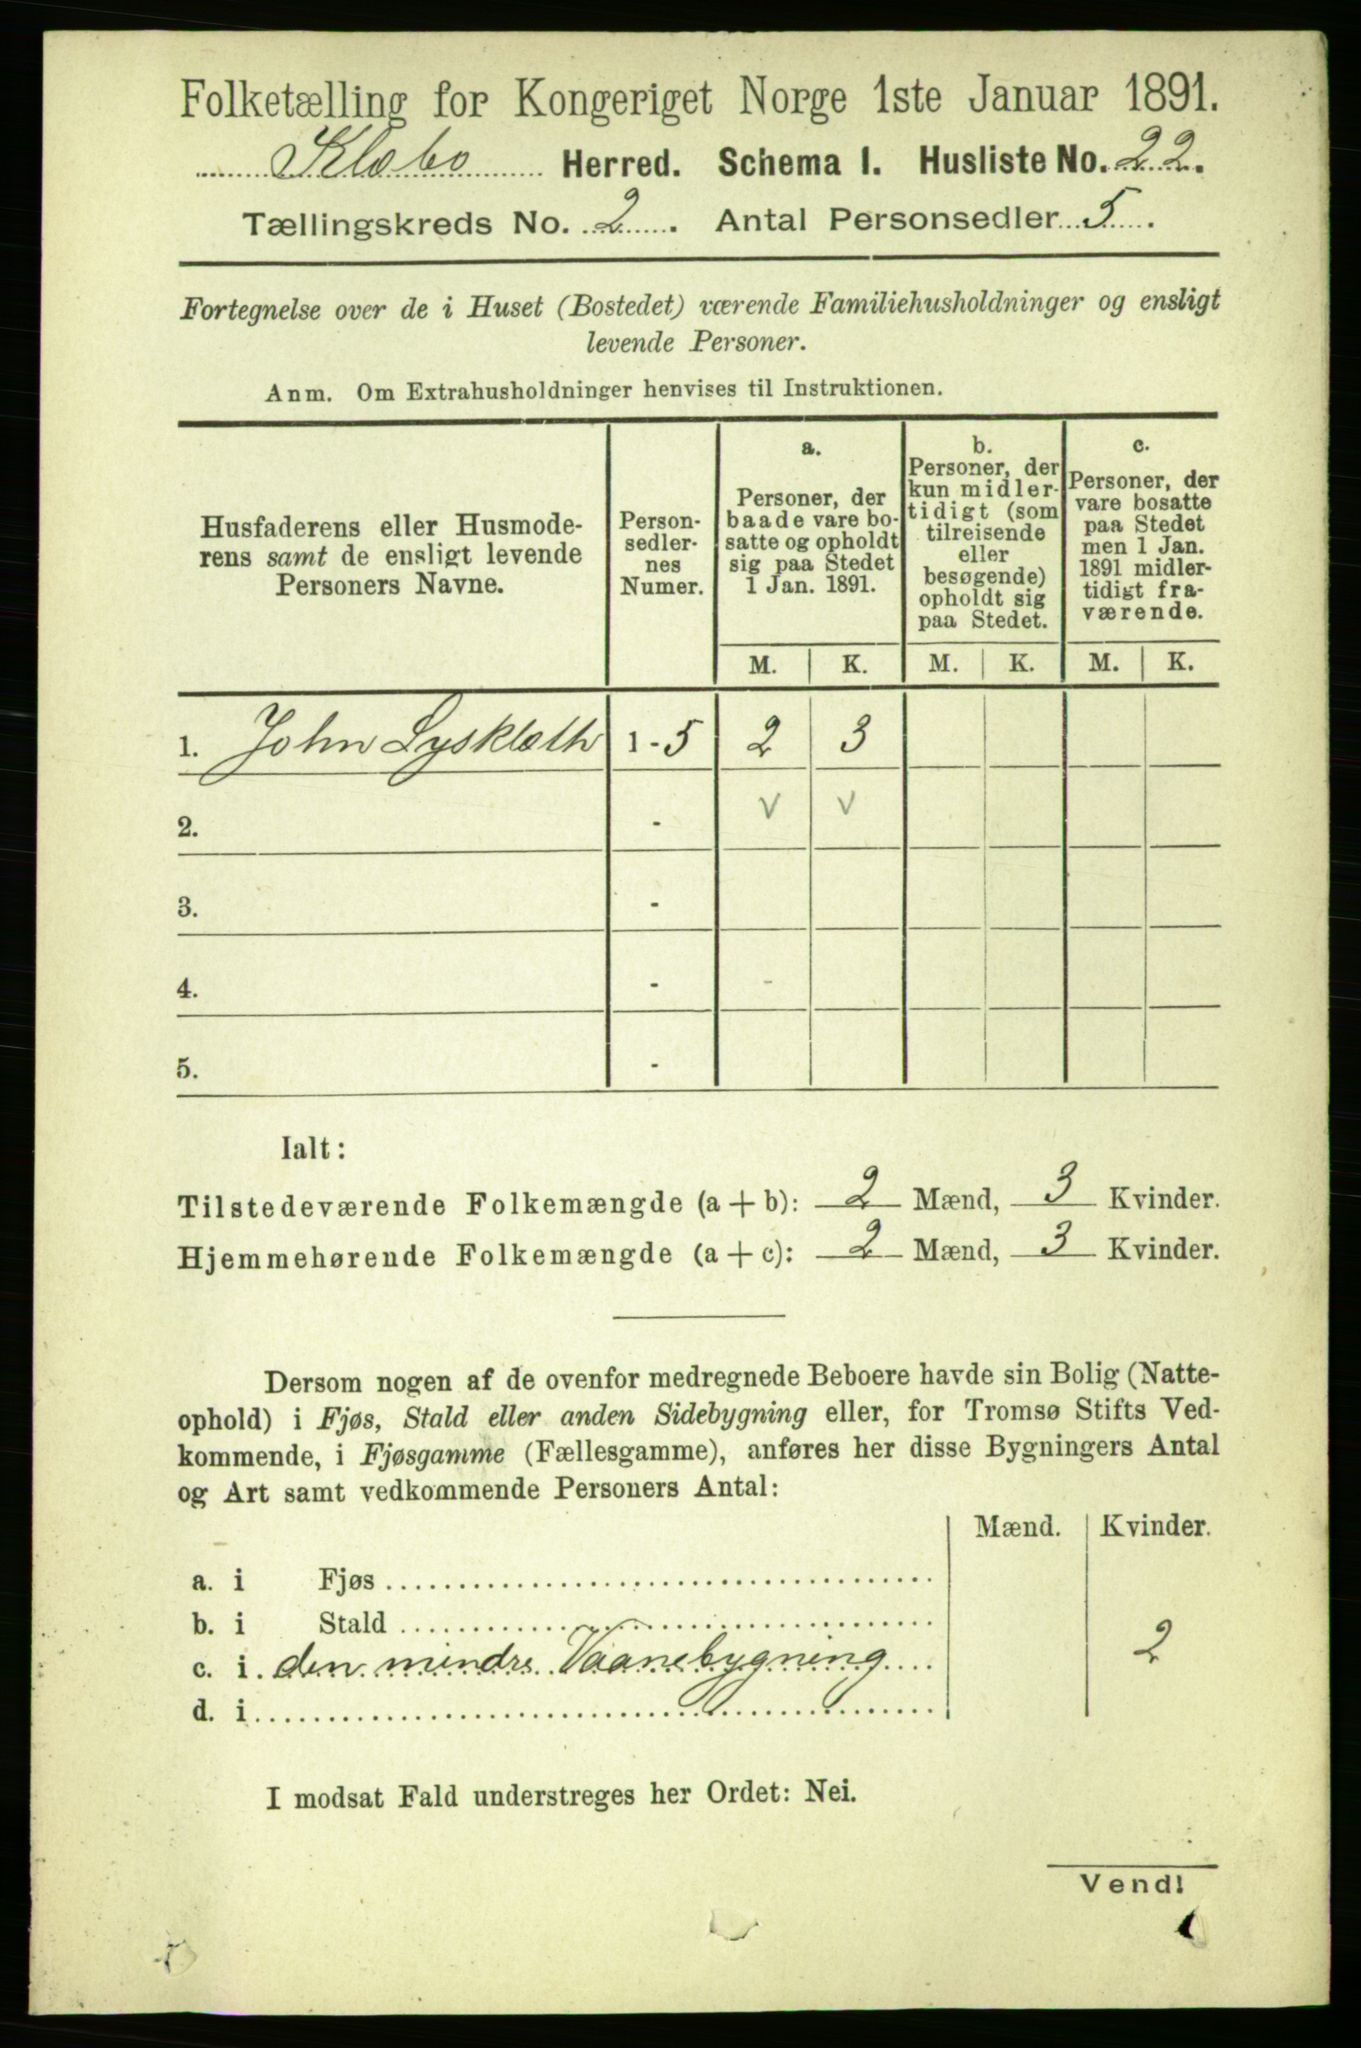 Folketælling for Kongeriget Norge 1ste Januar 1891.
Klæbo Herred. Schema 1. Husliste No. 22.
Tællingskreds No. 2. Antal Personsedler 5.
Fortegnelse over de i Huset (Bostedet) værende Familiehusholdninger og ensligt
levende Personer.
Anm. Om Extrahusholdninger henvises til Instruktionen.
Husfaderens eller Husmode-
rens samt de ensligt levende
Personers Navne.
Person-
sedler-
nes
Numer.
a.
Personer, der
baade vare bo-
satte og opholdt
sig paa Stedet
1 Jan. 1891.
b.
Personer, der
kun midler-
tidigt (som
tilreisende
eller
besøgende)
opholdt sig
paa Stedet.
c.
Personer, der
vare bosatte
paa Stedet
men 1 Jan.
1891 midler-
tidigt fra-
værende.
M. K. M. K. M. K.
1. John Lyskleth 1 - 5 2 3
2. - v v
3. -
4. - -
5. -
Ialt:
Tilstedeværende Folkemængde (a + b): 2 Mænd, 3 Kvinder.
Hjemmehørende Folkemængde (a + c): 2 Mænd, 3 Kvinder.
Dersom nogen af de ovenfor medregnede Beboere havde sin Bolig (Natte-
ophold) i Fjøs, Stald eller anden Sidebygning eller, for Tromsø Stifts Ved-
kommende, i Fjøsgamme (Fællesgamme), anføres her disse Bygningers Antal
og Art samt vedkommende Personers Antal:
Mænd. Kvinder.
a. i Fjøs
b. i Stald
c. i den mindre Vaanebygning 2
d. i
I modsat Fald understreges her Ordet: Nei.
Vend!